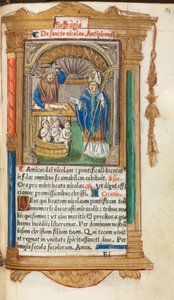 Suffragia
De sancto nicolao. Antiphona.
Amicus dei nicolaus: pontificali decoratus
infula: omnibus se amabilem exhibuit.
Ora pro nobis beate nicolae. Ut digni effi
ciamur promissionibus christi. Oratio.
Deus qui beatum nicolaum pontificem tuum in
numeris decorasti miraculis: tribue
nobis quesumus: ut eius meritis et precibus a ge
henne incendiis liberemur. Per dominum nostrum
iesum christum filium tuum. Qui tecum vivit
et regnat in unitate spiritussancti deus. Per
omnia secula seculorum. Amen.